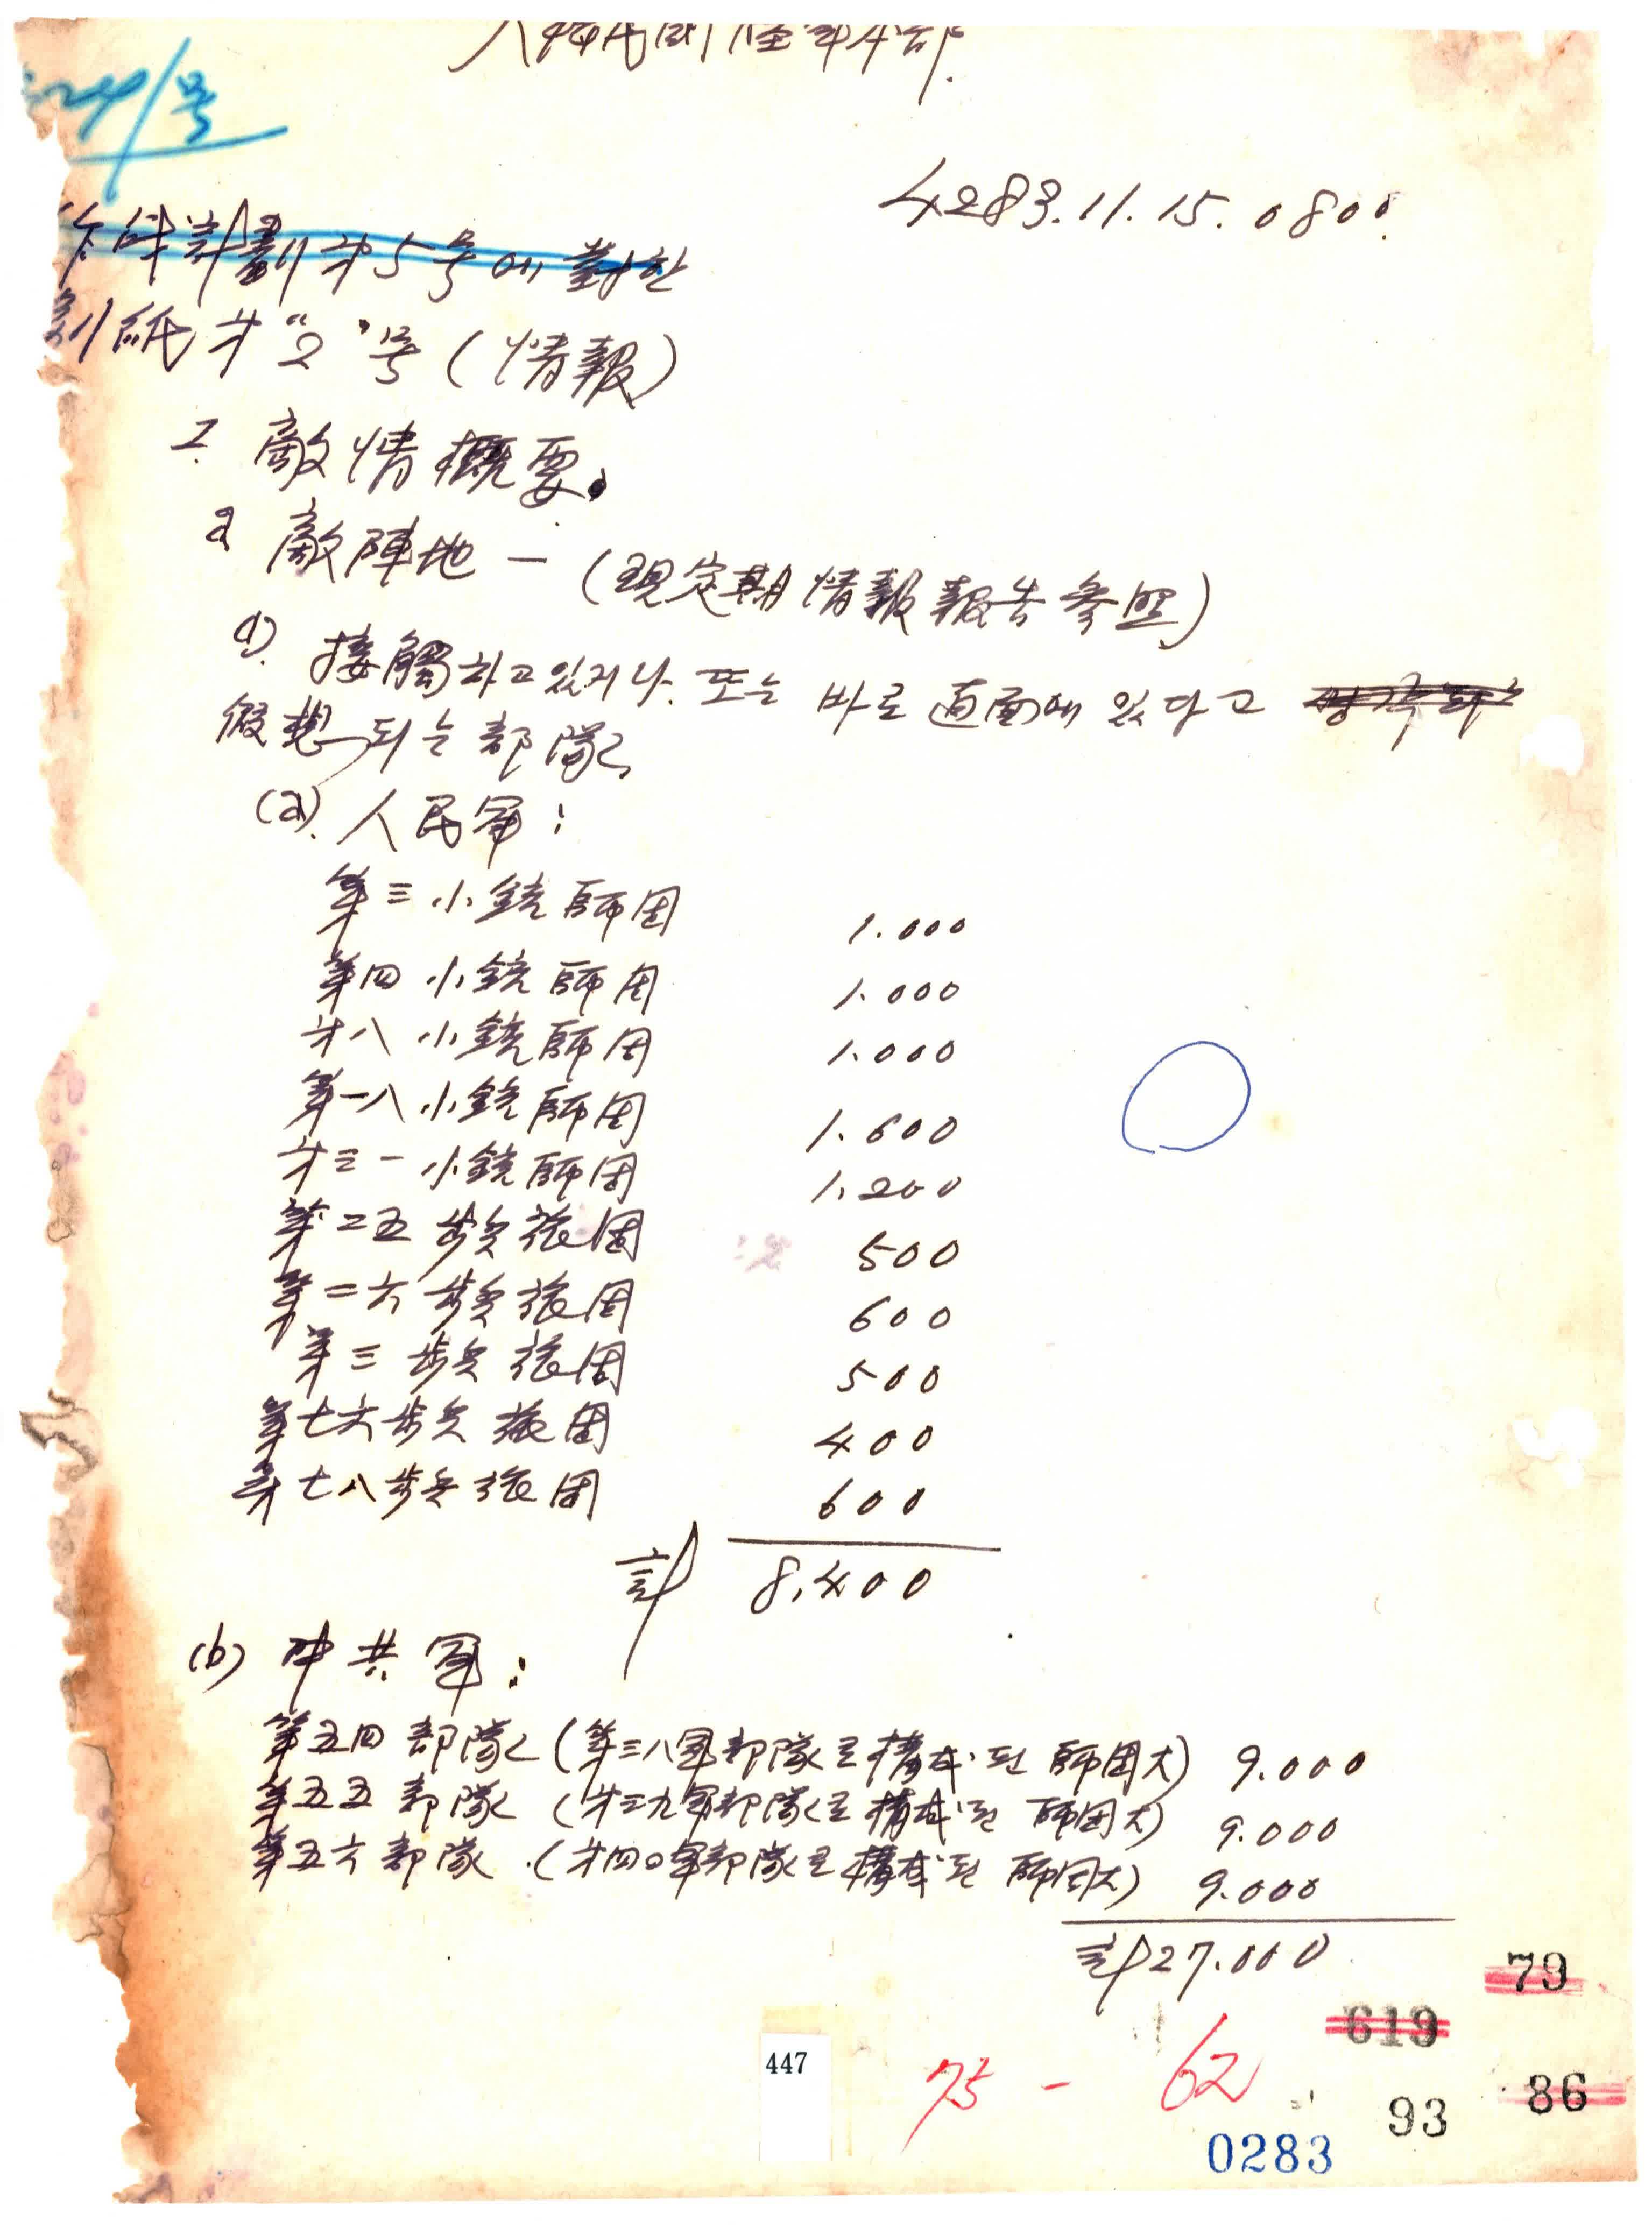 大韓民國陸軍本部
号
4283.11.15.0800.
作戰計劃㐧5号에 對한
別紙 㐧"2"号 (情報)
I. 敵情概要.
a 敵陣地 — (現定期情報報告參照)
(1). 接觸하고있거나. 또는 바로 直面에 있다고
假想되는 部隊
(a). 人民軍:
第三小銃師团 1.000
第四小銃師团 1.000
㐧八小銃師团 1.000
第一八小銃師团 1.600
㐧三一小銃師团 1.200
第二五步兵旅团 500
第二六步兵旅团 600
第三步兵旅团 500
第七六步兵旅团 400
第七八步兵旅团 600
計 8,400
(b) 中共軍:
第五四部隊 (第三八軍部隊로 構成된 師团大) 9.000
第五五部隊 (㐧三九軍部隊로 構成된 師团大) 9.000
第五六部隊 (㐧四〇軍部隊로 構成된 師团大) 9.000
計 27.000
79
619
447
75 - 62
93
86
0283